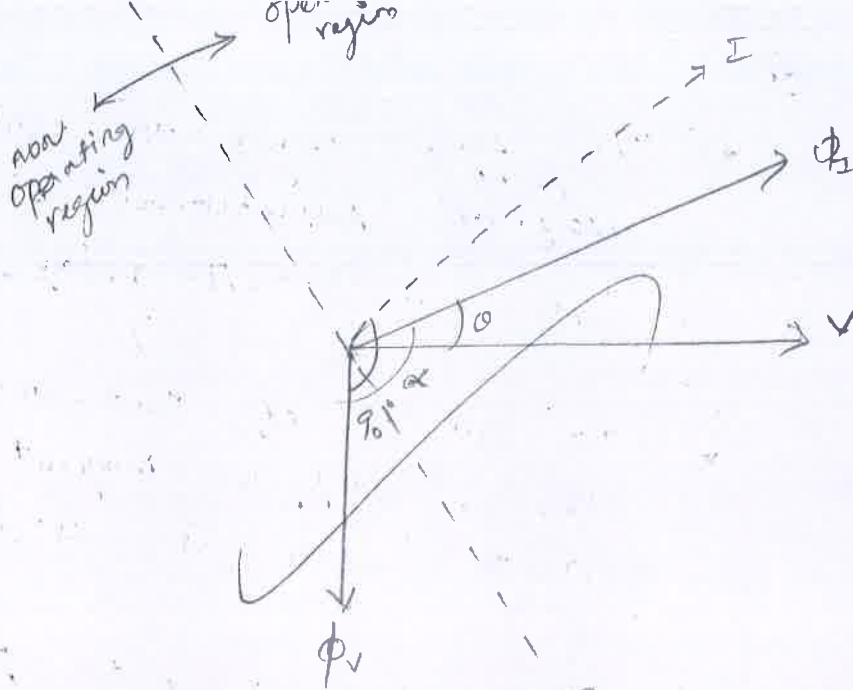 region
non
operating
region
I
ϕ_I
θ
V
α
90°
ϕ_V